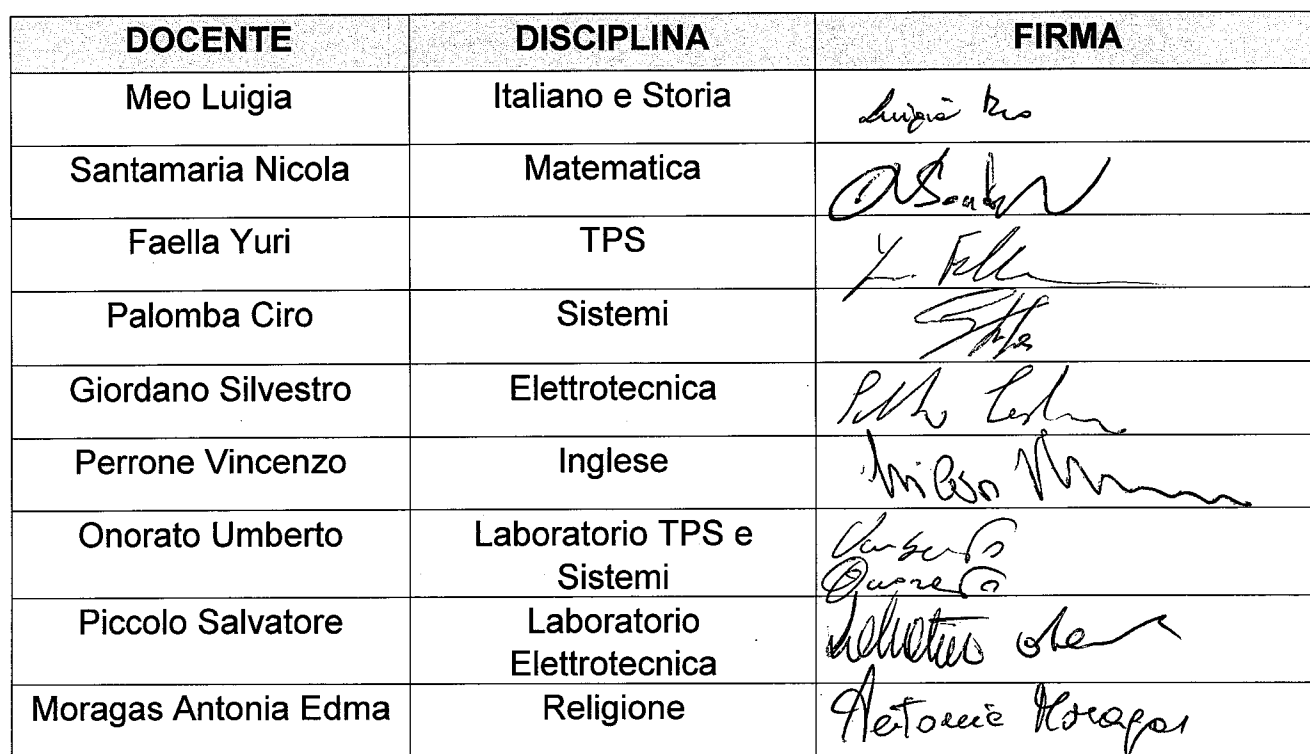 DOCENTE DISCIPLINA FIRMA
Meo Luigia Italiano e Storia Luigia Meo
Santamaria Nicola Matematica
Faella Yuri TPS
Palomba Ciro Sistemi
Giordano Silvestro Elettrotecnica
Perrone Vincenzo Inglese
Onorato Umberto Laboratorio TPS e Umberto
Sistemi Onorato
Piccolo Salvatore Laboratorio
Elettrotecnica
Moragas Antonia Edma Religione Antonia Moragas